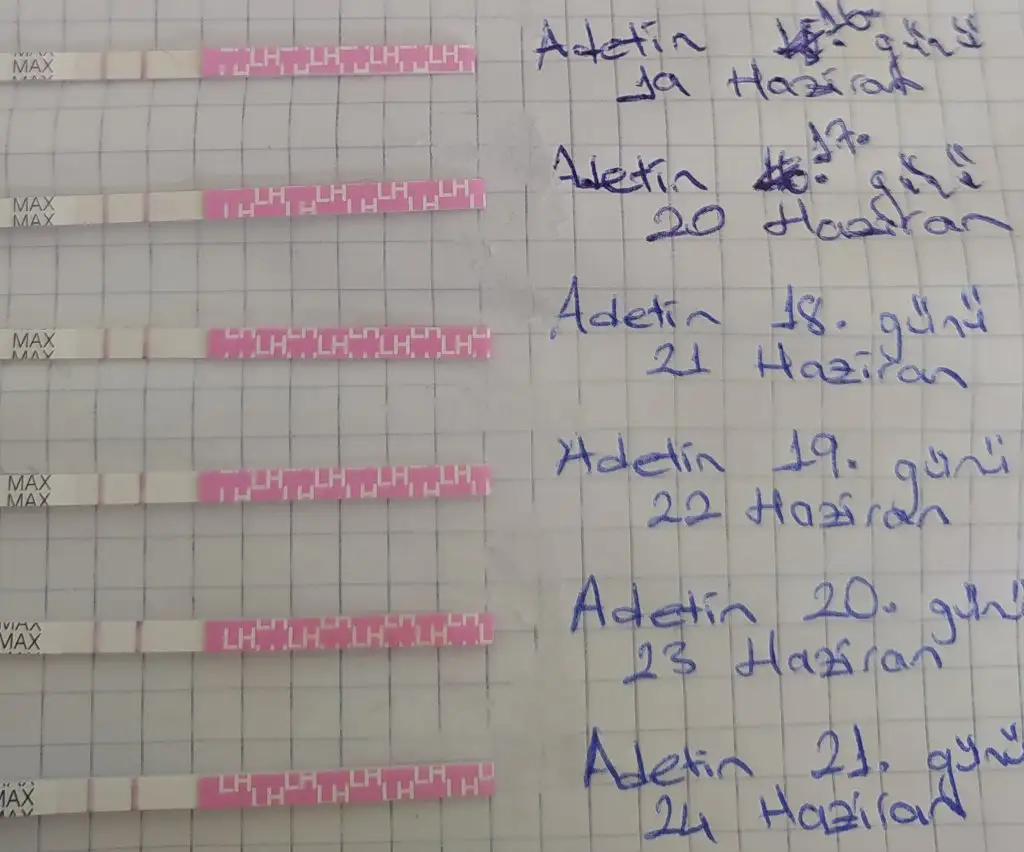 MAX
MAX
LH LH LH LH
Adetin 16. günü
19 Haziran
MAX
MAX
LH LH LH LH
Adetin 17. günü
20 Haziran
MAX
MAX
LH LH LH LH
Adetin 18. günü
21 Haziran
MAX
MAX
LH LH LH LH
Adetin 19. günü
22 Haziran
MAX
MAX
LH LH LH LH
Adetin 20. günü
23 Haziran
MAX
LH LH LH LH LH LH LH
Adetin 21. günü
24 Haziran